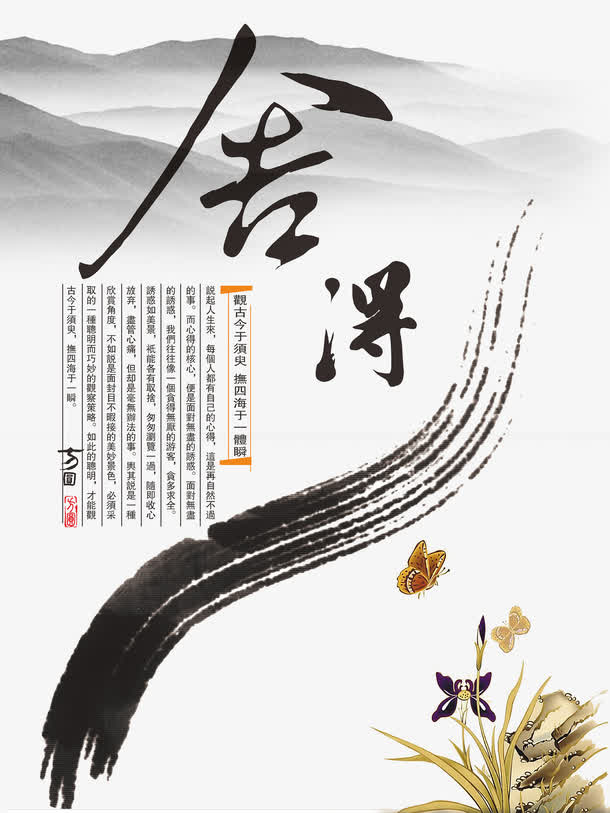 舍
得
觀古今于須臾 撫四海于一體瞬
説起人生來，每個人都有自己的心得，這是再自然不過
的事。而心得的核心，便是面對無盡的誘惑。面對無盡
的誘惑，我們往往像一個貪得無厭的游客，貪多求全。
誘惑如美景，衹能各有取捨，匆匆瀏覽一過，隨即收心
放弃，盡管心痛，但却是毫無辦法的事。輿其説是一種
欣賞角度，不如説是面封目不暇接的美妙景色，必須采
取的一種聰明而巧妙的觀察策略。如此的聰明，才能觀
古今于須臾，撫四海于一瞬。
方圓
方圓